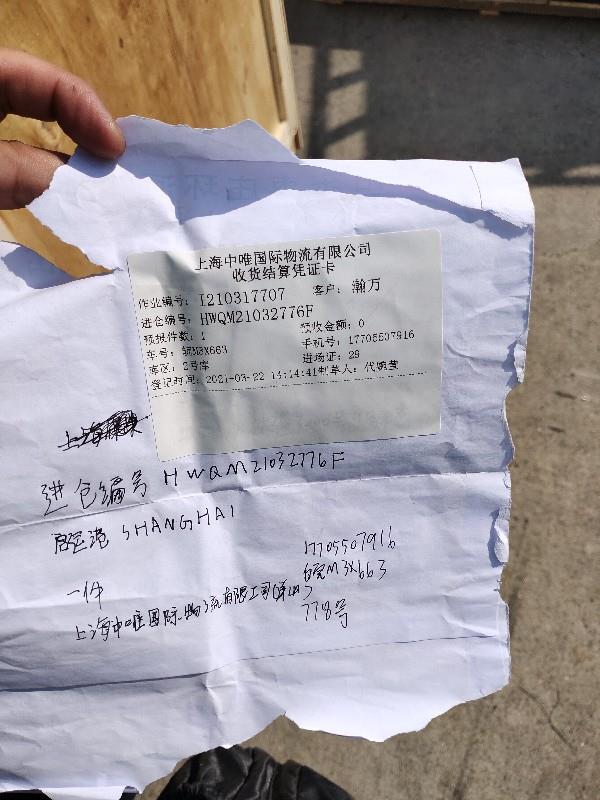 上海中唯国际物流有限公司
收货结算凭证卡
作业编号: I210317707 客户: 瀚万
进仓编号: HWQM21032776F
预报件数: 1 预收金额: 0
车号: 皖M3X663 手机号: 17705507916
库区: 2号库 进场证: 29
登记时间: 2021-03-22 14:14:41 制单人: 代婉莹
上海
进仓编号 HWQM21032776F
启运港 SHANGHAI
17705507916
一件 皖M3X663
上海中唯国际物流有限公司
778号